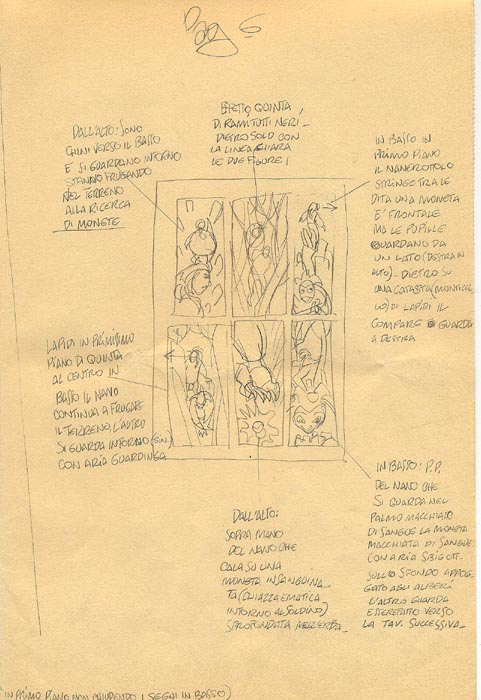 Pag 6
DALL'ALTO: SONO
CHINI VERSO IL BASSO
E SI GUARDANO INTORNO
STANNO FRUGANDO
NEL TERRENO
ALLA RICERCA
DI MONETE
EFFETTO QUINTA
DI RAMI TUTTI NERI
DIETRO SOLO CON
LA LINEA CHIARA
LE DUE FIGURE!
IN BASSO IN
PRIMO PIANO
IL NANEROTTOLO
STRINGE TRA LE
DITA UNA MONETA
E' FRONTALE
MA LE PUPILLE
GUARDANO DA
UN LATO (DESTRA IN
ALTO) - DIETRO SU
UNA CATASTA (MONTICEL
LO) DI LAPIDI IL
COMPARE GUARDA
A DESTRA
LAPIDI IN PRIMISSIMO
PIANO DI QUINTA
AL CENTRO IN
BASSO IL NANO
CONTINUA A FRUGARE
IL TERRENO, L'ALTRO
SI GUARDA INTORNO (SIN.)
CON ARIA GUARDINGA
DALL'ALTO:
SOPRA MANO
DEL NANO CHE
CALA SU UNA
MONETA INSANGUINA_
TA (CHIAZZA EMATICA
INTORNO AL SOLDINO)
SPROFONDATA NELL'ERBA_
IN BASSO: P.P.
DEL NANO CHE
SI GUARDA NEL
PALMO MACCHIATO
DI SANGUE LA MONETA
MACCHIATA DI SANGUE
CON ARIA SBIGOTT.
SULLO SFONDO APPOG_
GIATO AGLI ALBERI
L'ALTRO GUARDA
ESTEREFATTO VERSO
LA TAV. SUCCESSIVA_
(IN PRIMO PIANO NON CHIUDENDO I SEGNI IN BASSO)